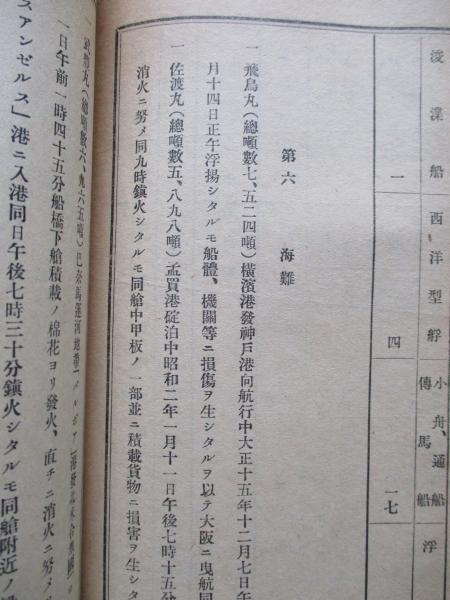 浚渫船 西洋型艀 小舟、通船 傳馬船 浮
一 四 一七
第六 海難
一 飛鳥丸(總噸數七、五二四噸)橫濱港發神戸港向航行中大正十五年十二月七日午
月十四日正午浮揚シタルモ船體、機關等ニ損傷ヲ生シタルヲ以テ大阪ニ曳航同
一 佐渡丸(總噸數五、八九八噸)孟買港碇泊中昭和二年一月十一日午後七時十五分
消火ニ努メ同九時鎭火シタルモ同艙中甲板ノ一部並ニ積載貨物ニ損害ヲ生シタ
丸(總噸數六、九六五噸)巴奈馬運河地帶
一日午前一時四十五分船橋下艙積載ノ棉花ヨリ發火、直チニ消火ニ努メ
スアンゼルス」港ニ入港同日午後七時三十分鎭火シタルモ同艙附近ノ